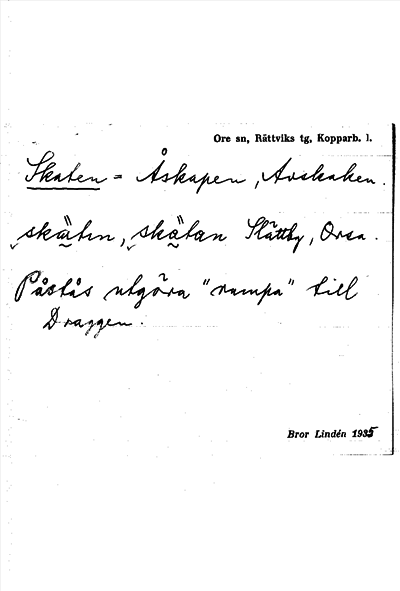 Ore sn, Rättviks tg, Kopparb. l.
Skaten = Åskapen, Avskaken.
skätın, skätan Slättby, Orsa.
Påstås utgöra "rumpa" till
Draggen.
Bror Lindén 1935